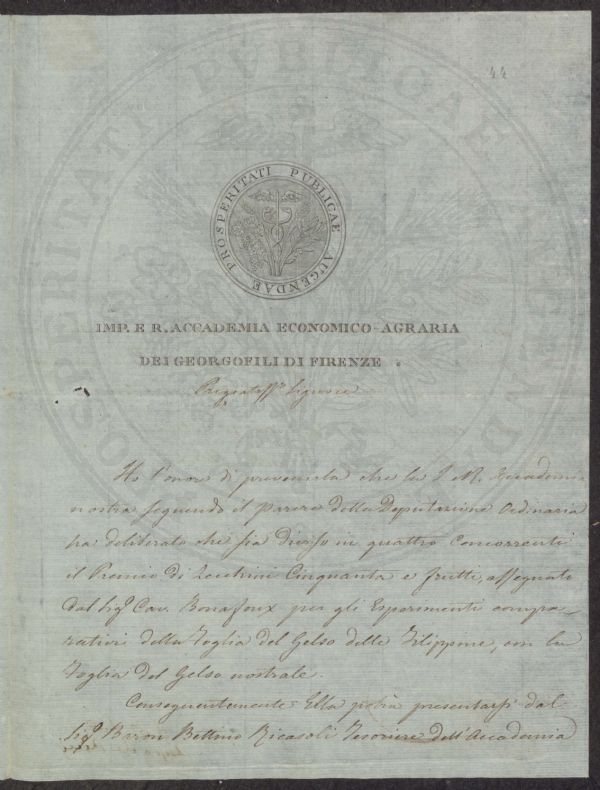 44
PROSPERITATI PUBLICAE AUGENDAE
IMP. E R. ACCADEMIA ECONOMICO-AGRARIA
DEI GEORGOFILI DI FIRENZE.
Pregiatiss.º Signore
Ho l'onor di prevenirla che la I. R. Accademia
nostra seguendo il parere della Deputazione Ordinaria
ha deliberato che sia diviso in quattro concorrenti
il Premio di Zecchini Cinquanta e frutti, assegnato
dal Sigº Cav. Bonafoux per gli Esperimenti compa-
rativi della Foglia del Gelso delle Filippine, con la
Foglia del Gelso nostrale.
Conseguentemente Ella potrà presentarsi dal
Sigº Baron Bettino Ricasoli Tesoriere dell'Accademia